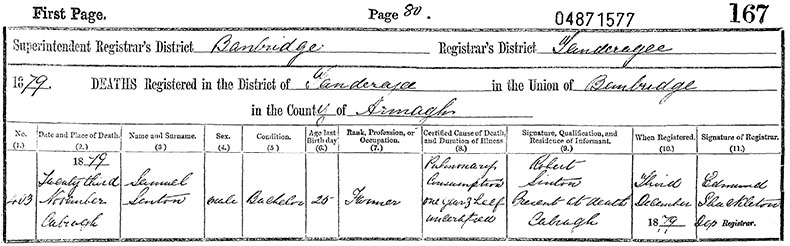 First Page. Page 80. 04871577 167
Superintendent Registrar's District Banbridge Registrar's District Tanderagee
1879. DEATHS Registered in the District of Tanderagee in the Union of Banbridge
in the County of Armagh
No. (1.) Date and Place of Death. (2.) Name and Surname. (3.) Sex. (4.) Condition. (5.) Age last Birthday (6.) Rank, Profession, or Occupation. (7.) Certified Cause of Death, and Duration of Illness (8.) Signature, Qualification, and Residence of Informant. (9.) When Registered. (10.) Signature of Registrar. (11.)
403
1879
Twenty third
November
Cabragh
Samuel
Sinton
male
Bachelor
25
Farmer
Pulmonary
Consumption
one year & half
uncertified
Robert
Sinton
Present at death
Cabragh
Third
December
1879
Edmund
Shackleton
Dep Registrar.